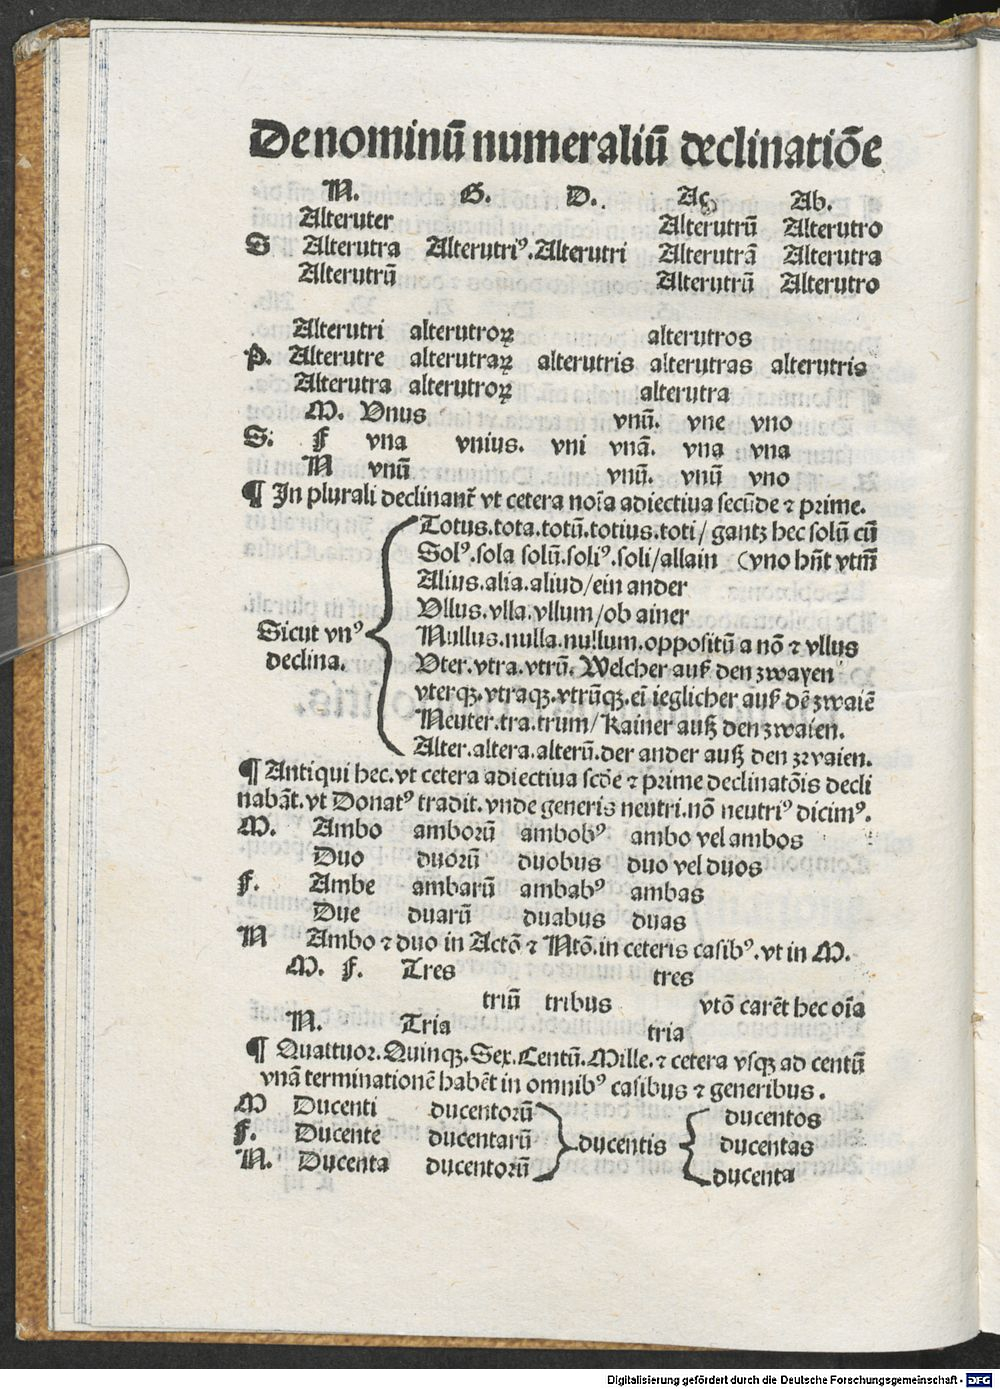 De nominū numeraliū declinatiōe
N. G. D. Ac Ab.
Alteruter Alterutrū Alterutro
S Alterutra Alterutriꝰ. Alterutri Alterutrā Alterutra
Alterutrū Alterutrū Alterutro
Alterutri alterutroꝝ alterutros
P. Alterutre alterutraꝝ alterutris alterutras alterutris
Alterutra alterutroꝝ alterutra
M. Unus vnū. vne vno
S: F vna vnius. vni vnā. vna vna
N vnū vnū. vnū vno
¶ In plurali declinant᷑ vt cetera noīa adiectiua secūde ⁊ prime.
Totus.tota.totū.totius.toti/gantz hec solū cū
Solꝰ.sola solū.soliꝰ.soli/allain (vno hn̄t vtm̄
Alius.alia.aliud/ein ander
Ullus.vlla.vllum/ob ainer
Sicut vnꝰ Nullus.nulla.nullum.oppositū a nō ⁊ vllus
declina. Uter.vtra.vtrū. Welcher auß den zwayen
vterqꝫ.vtraqꝫ.vtrūqꝫ.eī ieglicher auß dē zwaiē
Neuter.tra.trum/kainer auß den zwaien.
Alter.altera.alterū.der ander auß den zwaien.
¶ Antiqui hec.vt cetera adiectiua scd̄e ⁊ prime declinatōis decli
nabāt.vt Donatꝰ tradit.vnde generis neutri.nō neutriꝰ dicimꝰ.
M. Ambo amborū ambobꝰ ambo vel ambos
Duo duorū duobus duo vel duos
F. Ambe ambarū ambabꝰ ambas
Due duarū duabus duas
N Ambo ⁊ duo in Actō ⁊ Ntō.in ceteris casibꝰ.vt in M.
M. F. Tres tres
triū tribus vtō carēt hec oīa
N. Tria tria
¶ Quattuor.Quinqꝫ.Sex.Centū.Mille.⁊ cetera vsqꝫ ad centū
vnā terminationē habēt in omnibꝰ casibus ⁊ generibus.
M Ducenti ducentorū ducentos
F. Ducente ducentarū ducentis ducentas
N. Ducenta ducentorū ducenta
Digitalisierung gefördert durch die Deutsche Forschungsgemeinschaft - DFG